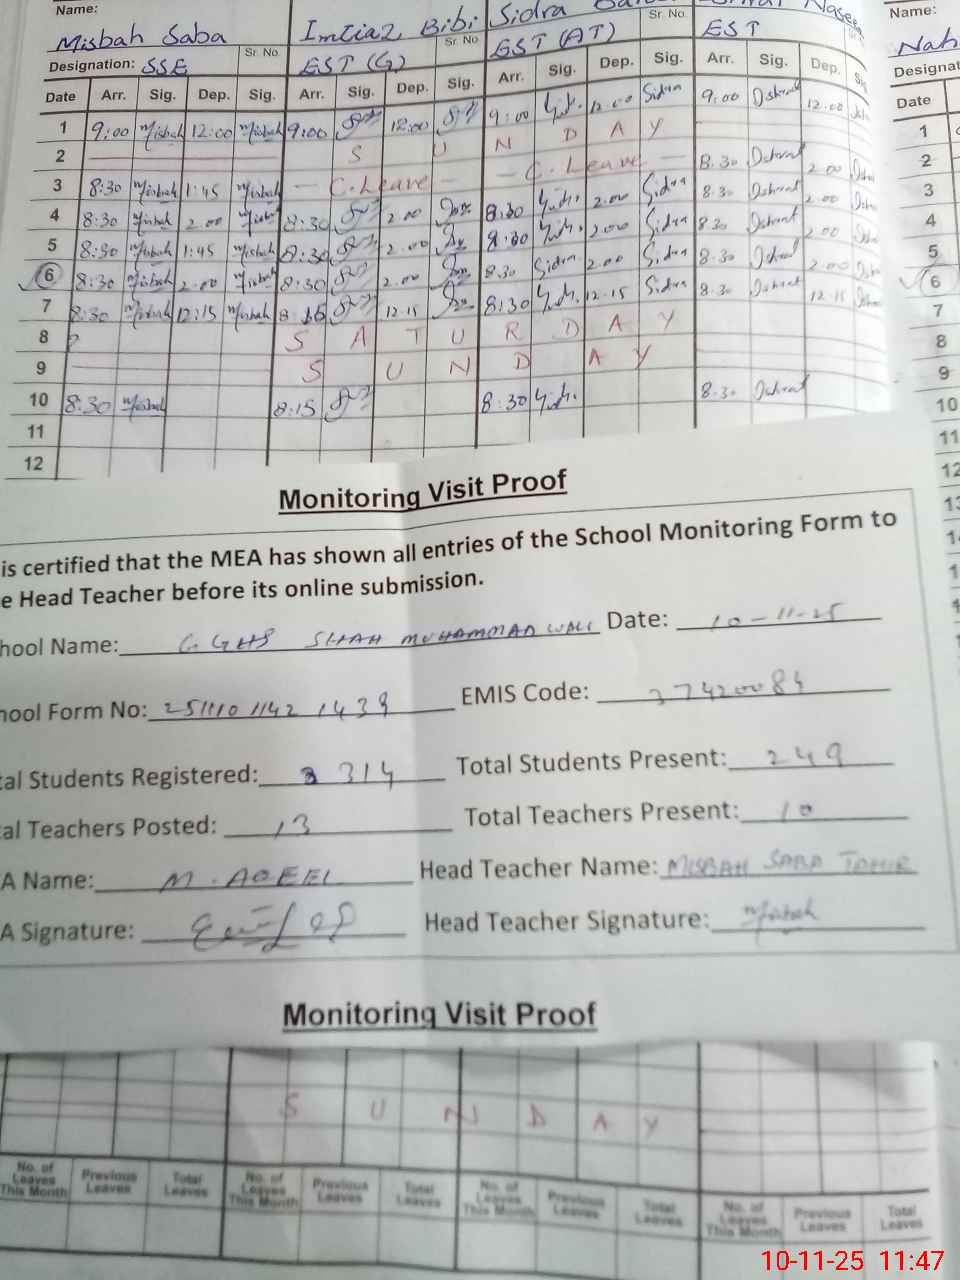 Name:
Misbah Saba Imtiaz Bibi Sidra
Sr. No. Sr. No. Sr. No.
Designation: SSE EST (G) EST (AT) EST
Date Arr. Sig. Dep. Sig. Arr. Sig. Dep. Sig. Arr. Sig. Dep. Sig. Arr. Sig. Dep. Sig.
1 9:00 Misbah 12:00 Misbah 9:00 12:00 9:00 12:00 Sidra 9:00 12:00
2 S U N D A Y
3 8:30 Misbah 1:45 Misbah - C. Leave - - C. Leave - 8:30 2:00
4 8:30 Misbah 2:00 Misbah 8:30 2:00 8:30 2:00 Sidra 8:30 2:00
5 8:30 Misbah 1:45 Misbah 8:30 2:00 8:30 2:00 Sidra 8:30 2:00
6 8:30 Misbah 2:00 Misbah 8:30 2:00 8:30 Sidra 2:00 Sidra 8:30 2:00
7 8:30 Misbah 12:15 Misbah 12:15 8:30 12:15 Sidra 8:30 12:15
8 S A T U R D A Y
9 S U N D A Y
10 8:30 Misbah 8:15 8:30 8:30
11
12
Name:
Designat
Date
1
2
3
4
5
6
7
8
9
10
11
12
13
Monitoring Visit Proof
is certified that the MEA has shown all entries of the School Monitoring Form to
e Head Teacher before its online submission.
hool Name: GGHS SHAH MUHAMMAD WALI Date: 10-11-25
hool Form No: EMIS Code: 37420084
tal Students Registered: 314 Total Students Present: 249
al Teachers Posted: 13 Total Teachers Present: 10
A Name: M. AQEEL Head Teacher Name: MISBAH SABA TAHIR
A Signature: Head Teacher Signature: Misbah
Monitoring Visit Proof
S U N D A Y
No. of Leaves This Month Previous Leaves Total Leaves No. of Leaves This Month Previous Leaves Total Leaves No. of Leaves This Month Previous Leaves Total Leaves No. of Leaves This Month Previous Leaves Total Leaves
10-11-25 11:47